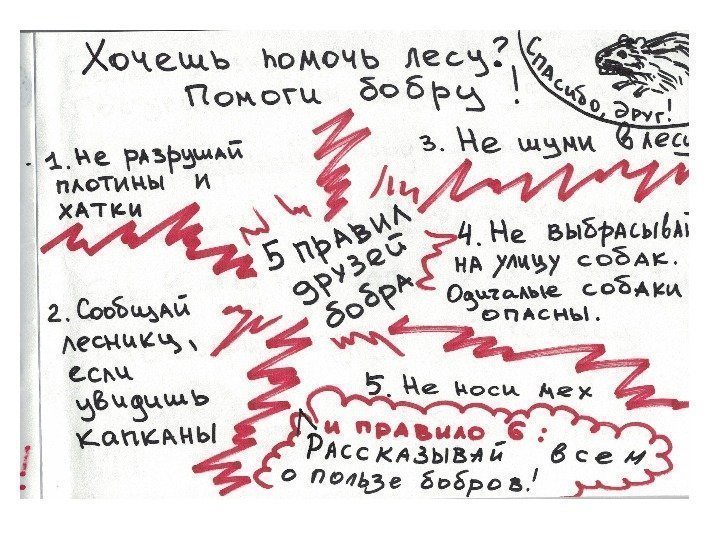 Хочешь помочь лесу?
Помоги бобру!
Спасибо, друг!
1. Не разрушай
плотины и
хатки
2. Сообщай
леснику,
если
увидишь
капканы
5 правил
друзей
бобра
3. Не шуми в лесу
4. Не выбрасывай
на улицу собак.
Одичалые собаки
опасны.
5. Не носи мех
и правило 6:
Рассказывай всем
о пользе бобров!